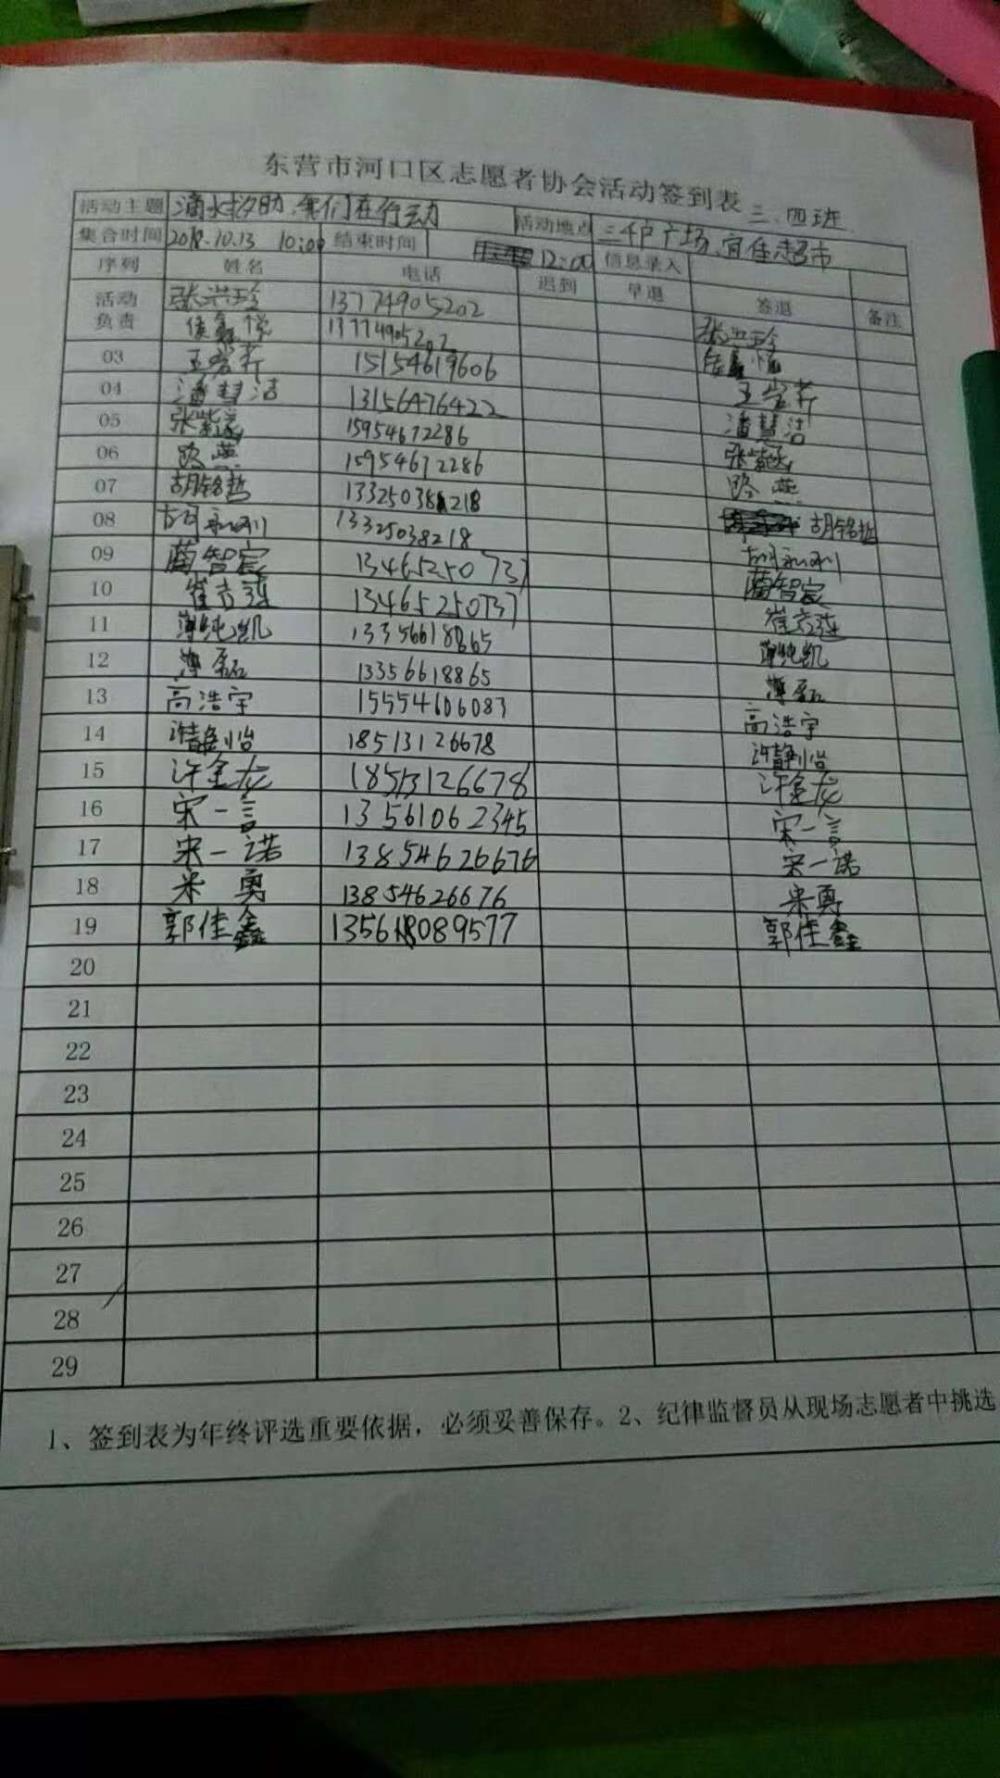 东营市河口区志愿者协会活动签到表 三.四班
活动主题 滴水救助,我们在行动 活动地点 三千户广场,宜佳超市
集合时间 2018.10.13 10:00 结束时间 12:00 信息录入
序列 姓名 电话 迟到 早退 签退 备注
活动 张洪玲 13774905202 张洪玲
负责 侯鑫悦 13774905202 侯鑫悦
03 15154619606
04 潘慧洁 13156476422 潘慧洁
05 张紫涵 15954672286 张紫涵
06 路燕 15954672286 路燕
07 胡铭哲 13325038218 胡铭哲
08 胡永刚 13325038218 胡永刚
09 蔺智宸 13465250737 蔺智宸
10 崔方莲 13465250737 崔方莲
11 薄纯凯 13356618865 薄纯凯
12 薄磊 13356618865 薄磊
13 高浩宇 15554606083 高浩宇
14 许静怡 18513126678 许静怡
15 许金龙 18513126678 许金龙
16 宋一言 13561062345 宋一言
17 宋一诺 13854626676 宋一诺
18 米勇 13854626676 米勇
19 郭佳鑫 13561089577 郭佳鑫
20
21
22
23
24
25
26
27
28
29
1、签到表为年终评选重要依据，必须妥善保存。2、纪律监督员从现场志愿者中挑选